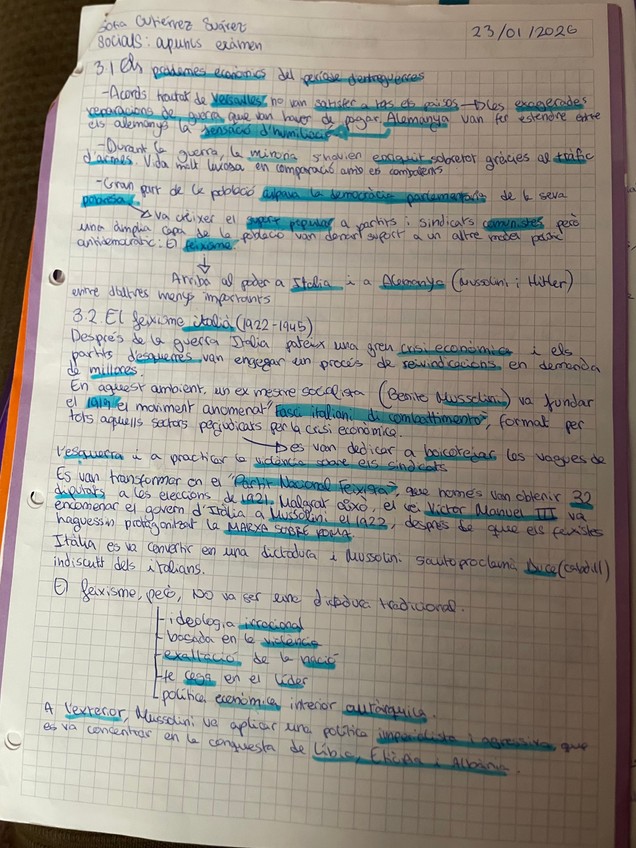 Sofia Gutiérrez Suárez
23/01/2026
Socials: apunts exàmen
3.1 Els problemes econòmics del període d'entreguerres
-Acords tractat de Versalles no van satisfer a tots els països → Les exagerades
reparacions de guerra que van haver de pagar Alemanya van fer estendre entre
els alemanys la sensació d'humiliació
-Durant la guerra, la minoria s'havien enriquit sobretot gràcies al tràfic
d'armes. Vida molt luxosa en comparació amb ex combatents
-Gran part de la població culpava la democràcia parlamentària de la seva
pobresa.
→ va créixer el suport popular a partits i sindicats comunistes però
una àmplia capa de la població van donar suport a un altre model polític
antidemocràtic: El feixisme.
Arriba al poder a Itàlia i a Alemanya (Mussolini i Hitler)
entre d'altres menys importants
3.2. El feixisme italià (1922-1945)
Després de la guerra Itàlia pateix una greu crisi econòmica i els
partits d'esquerres van engegar un procés de reivindicacions en demanda
de millores.
En aquest ambient, un ex mestre socialista (Benito Mussolini) va fundar
el 1919 el moviment anomenat "Fasci italiani di combattimento", format per
tots aquells sectors perjudicats per la crisi econòmica.
→ es van dedicar a boicotejar les vagues de
l'esquerra i a practicar la violència contra els sindicats
Es van transformar en el "Partit Nacional Feixista", que només van obtenir 32
diputats a les eleccions de 1921. Malgrat això, el rei Víctor Manuel III va
encomenar el govern d'Itàlia a Mussolini el 1922, després de que els feixistes
haguessin protagonitzat la MARXA SOBRE ROMA
Itàlia es va convertir en una dictadura i Mussolini s'autoproclamà Duce (cabdill)
indiscutit dels italians.
El feixisme, però, NO va ser una dictadura tradicional.
- ideologia irracional
- basada en la violència
- exaltació de la nació
- fe cega en el líder
- política econòmica interior autàrquica.
A l'exterior, Mussolini va aplicar una política imperialista i agressiva que
es va concentrar en la conquesta de Líbia, Etiòpia i Albània.